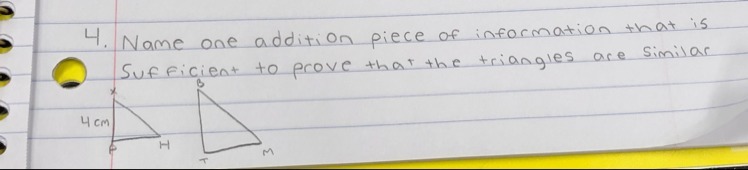 4. Name one addition piece of information that is
sufficient to prove that the triangles are similar
X B
4cm
P H T M